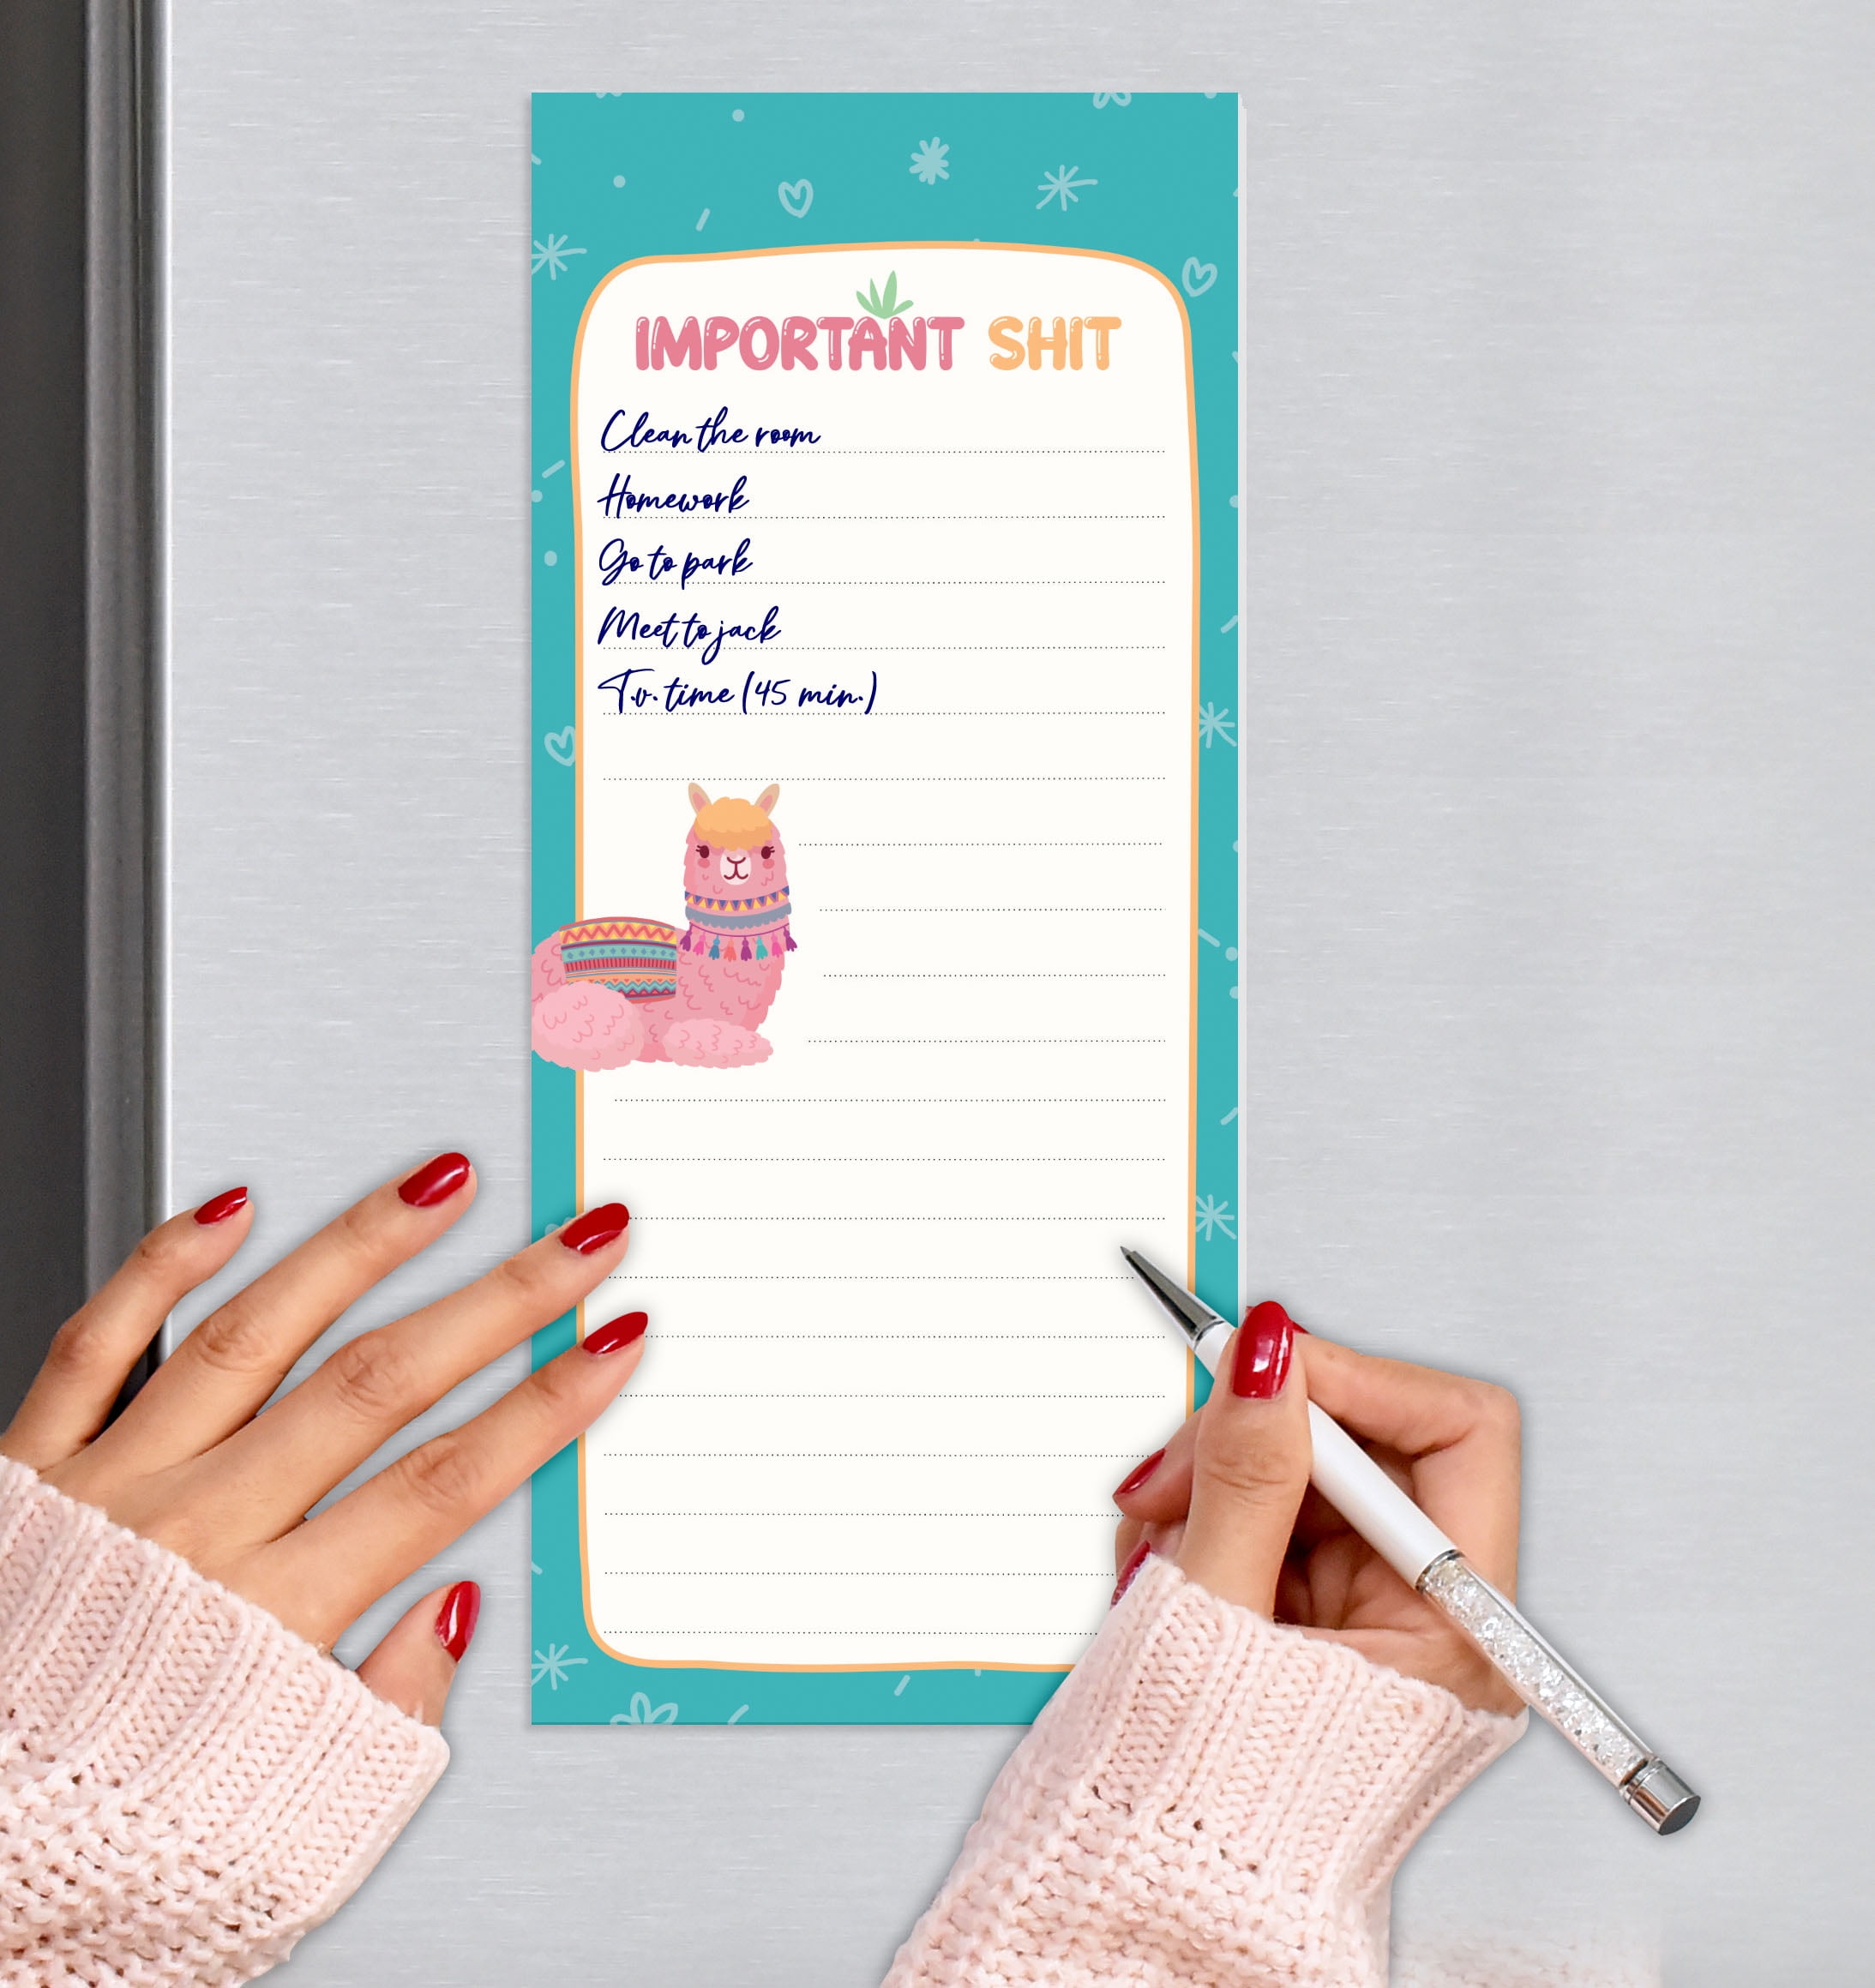 IMPORTANT SHIT
Clean the room
Homework
Go to park
Meet to jack
T.v. time (45 min.)